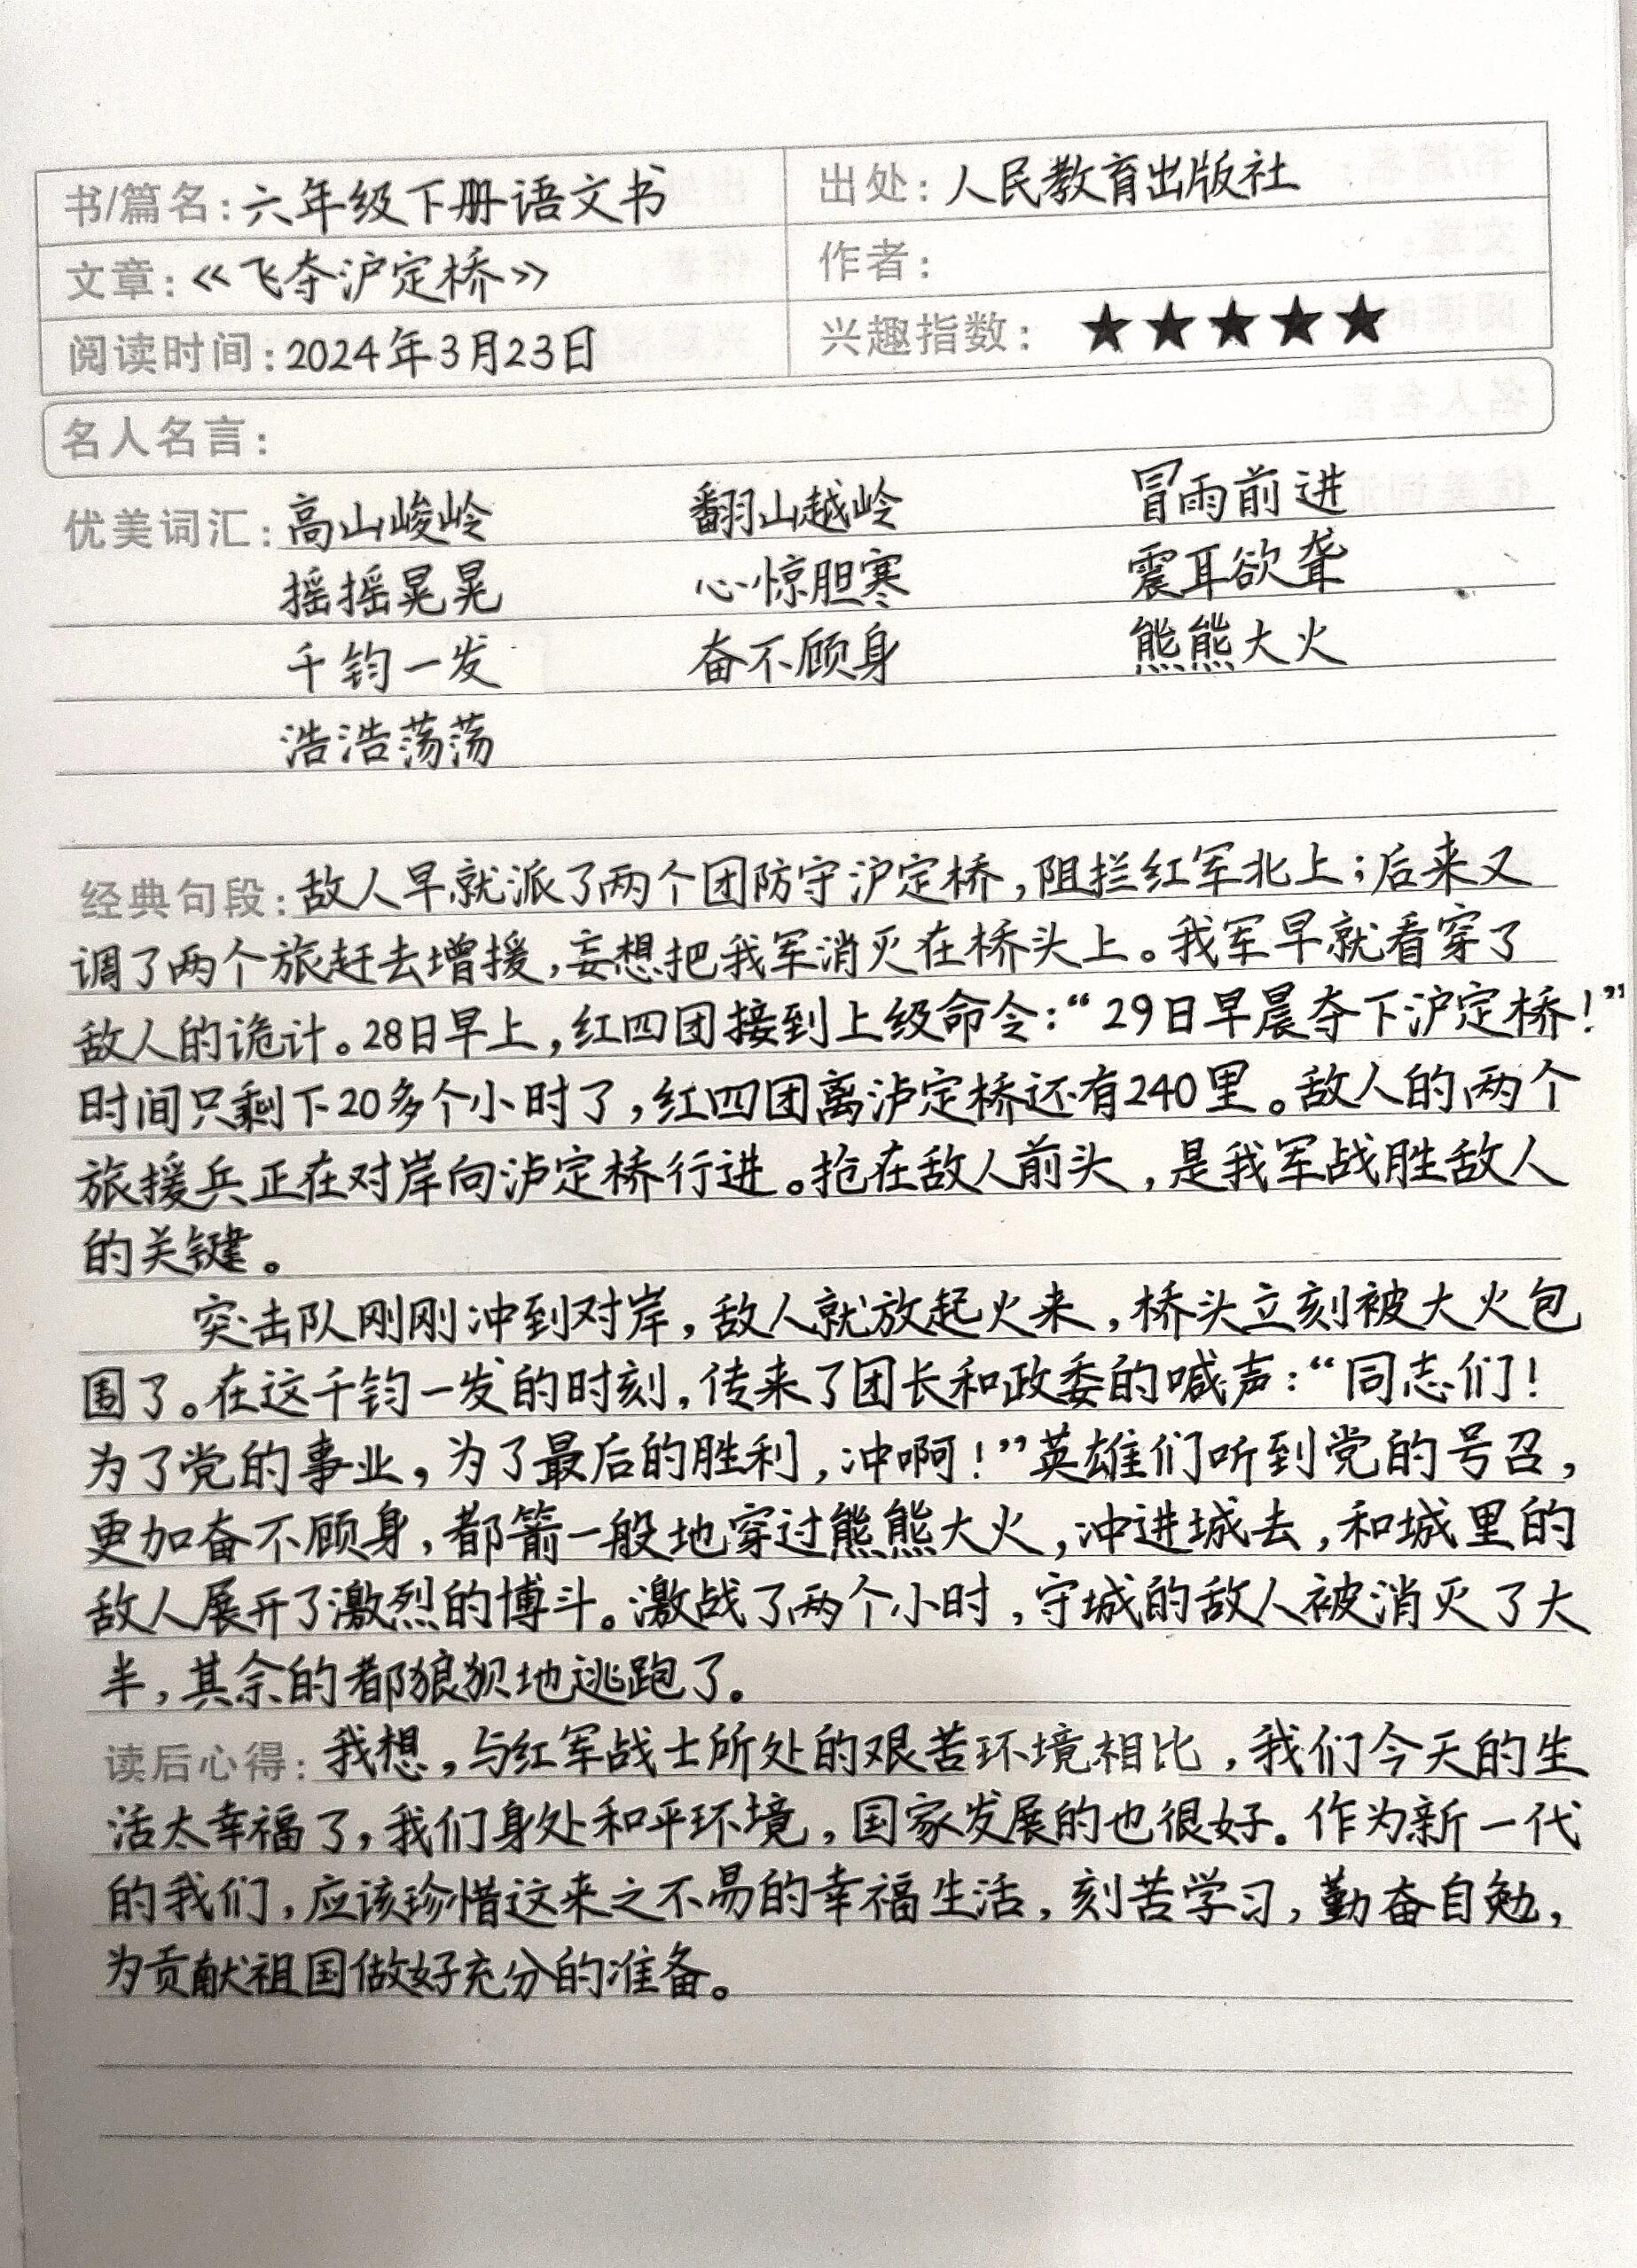 书/篇名：六年级下册语文书 出处：人民教育出版社
文章：《飞夺沪定桥》 作者：
阅读时间：2024年3月23日 兴趣指数：★★★★★
名人名言：
优美词汇：高山峻岭 翻山越岭 冒雨前进
摇摇晃晃 心惊胆寒 震耳欲聋
千钧一发 奋不顾身 熊熊大火
浩浩荡荡
经典句段：敌人早就派了两个团防守沪定桥，阻拦红军北上；后来又
调了两个旅赶去增援，妄想把我军消灭在桥头上。我军早就看穿了
敌人的诡计。28日早上，红四团接到上级命令：“29日早晨夺下沪定桥！”
时间只剩下20多个小时了，红四团离泸定桥还有240里。敌人的两个
旅援兵正在对岸向泸定桥行进。抢在敌人前头，是我军战胜敌人
的关键。
突击队刚刚冲到对岸，敌人就放起火来，桥头立刻被大火包
围了。在这千钧一发的时刻，传来了团长和政委的喊声：“同志们！
为了党的事业，为了最后的胜利，冲啊！”英雄们听到党的号召，
更加奋不顾身，都箭一般地穿过熊熊大火，冲进城去，和城里的
敌人展开了激烈的博斗。激战了两个小时，守城的敌人被消灭了大
半，其余的都狼狈地逃跑了。
读后心得：我想，与红军战士所处的艰苦环境相比，我们今天的生
活太幸福了，我们身处和平环境，国家发展的也很好。作为新一代
的我们，应该珍惜这来之不易的幸福生活，刻苦学习，勤奋自勉，
为贡献祖国做好充分的准备。